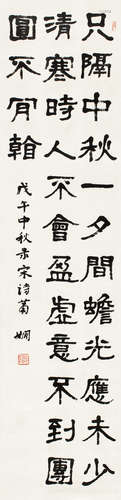 只隔中秋一夕間蟾光應未少
清寒時人不會盈虛意不到團
圓不肎看
戊午中秋录宋诗 嫻